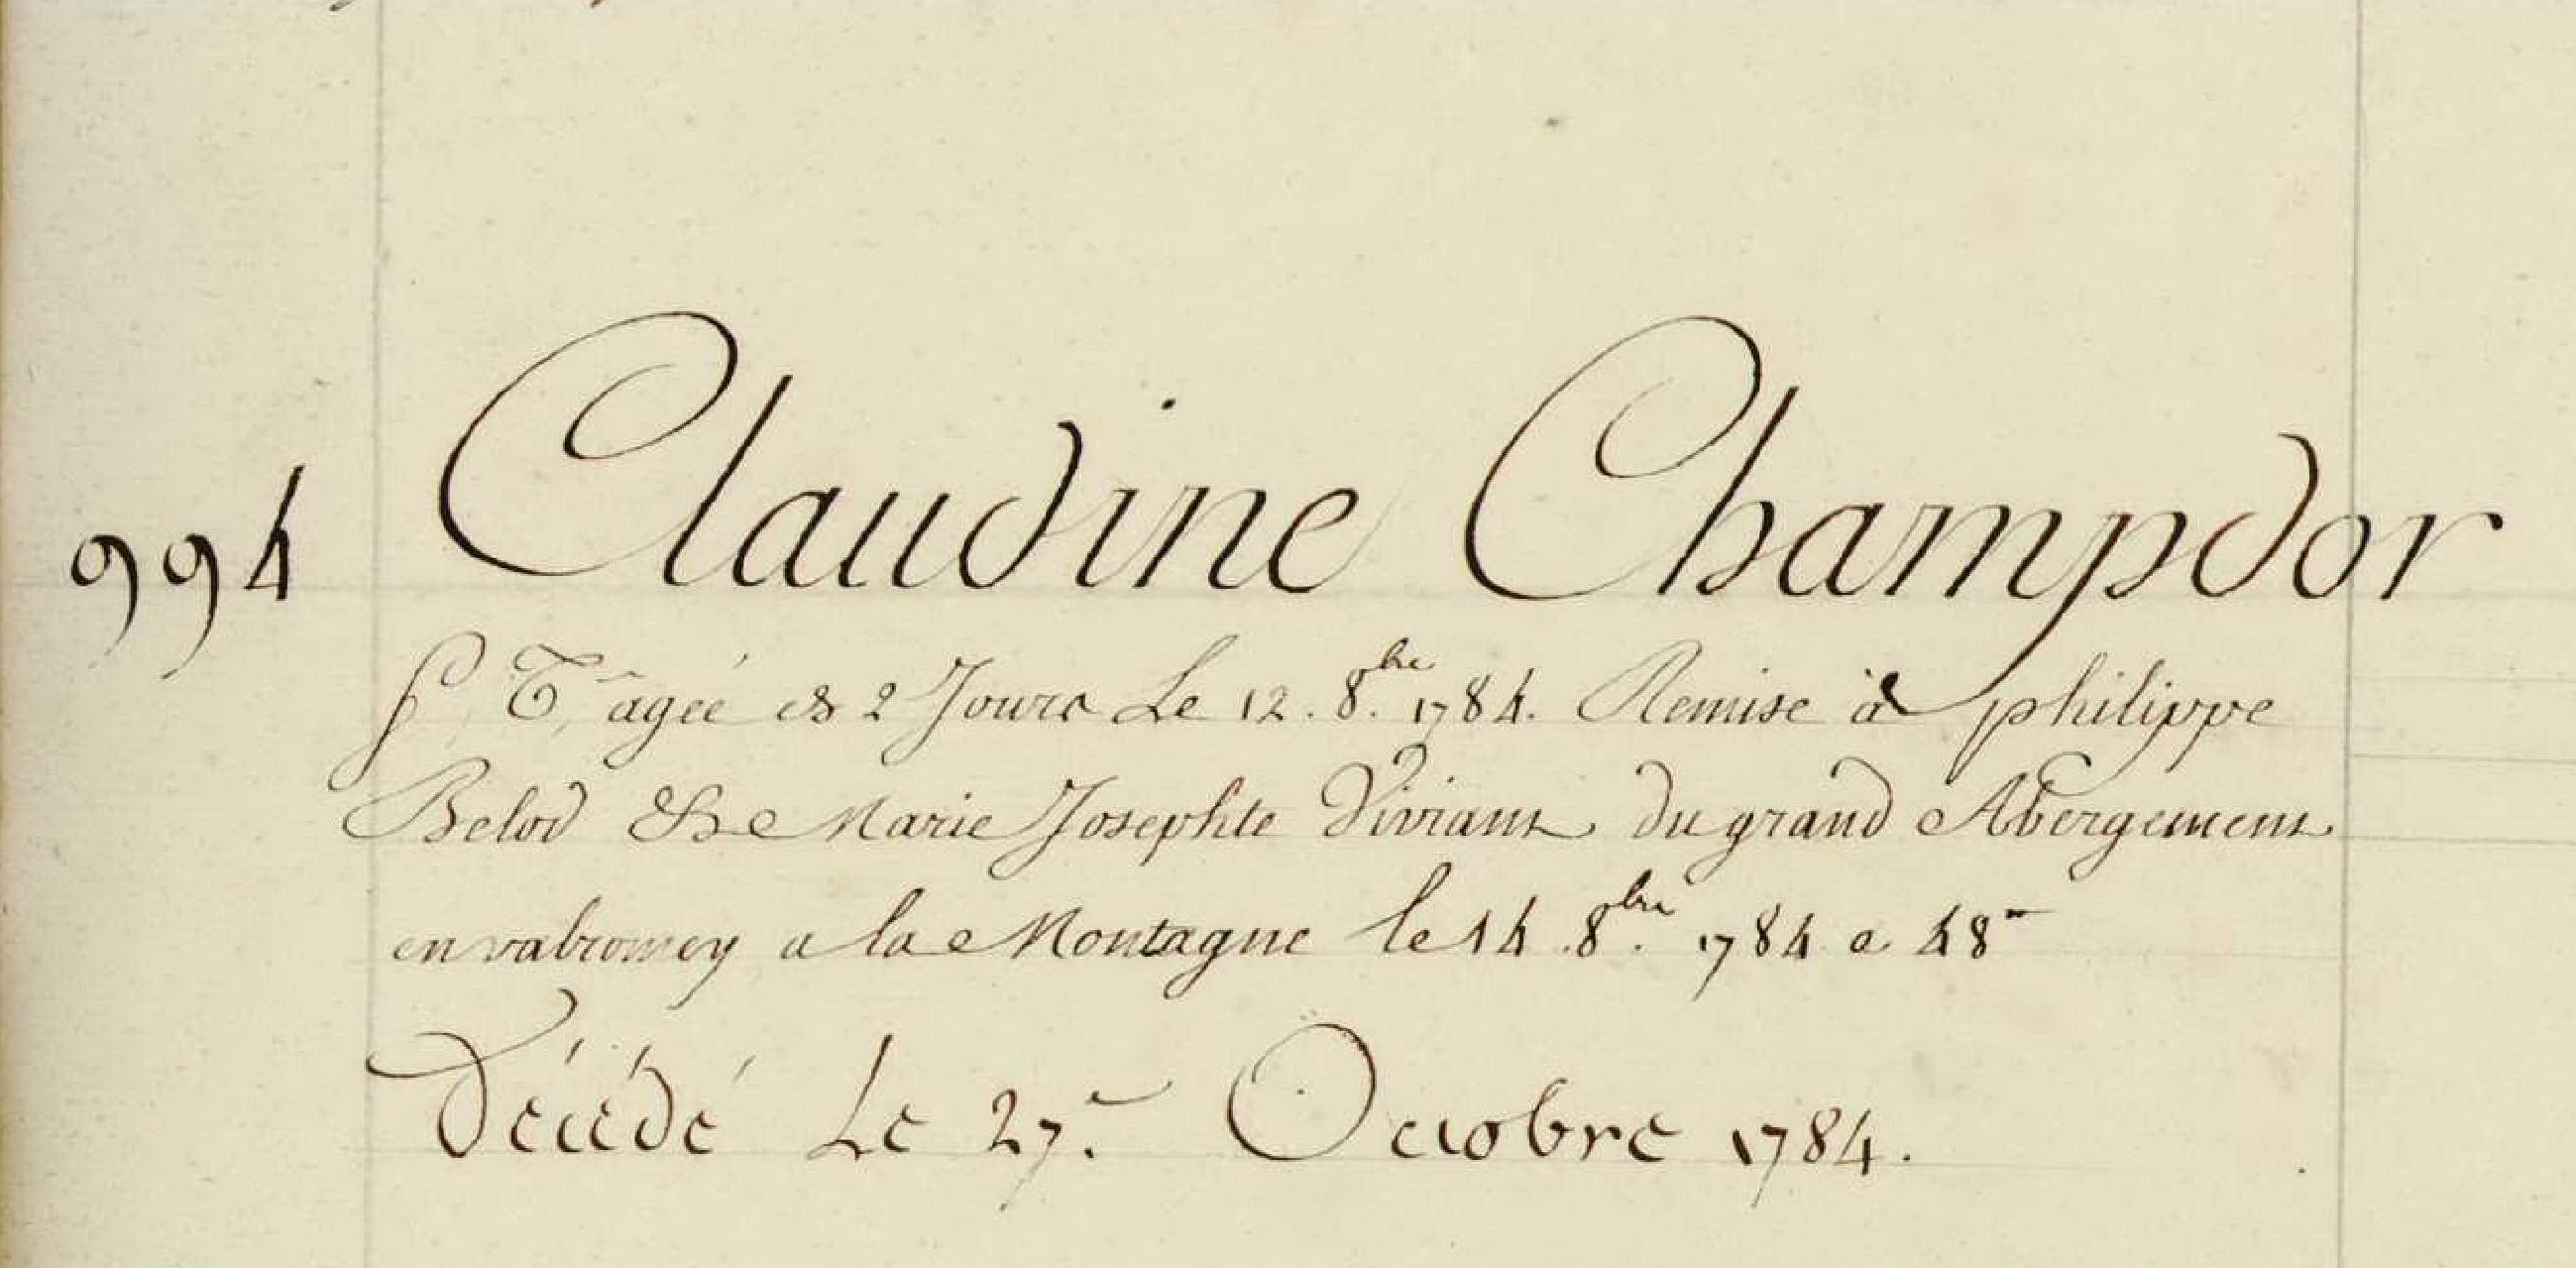 994 Claudine Champdor
f T agée de 2 Jours Le 12. 8.bre 1784. Remise à philippe
Belod & a Marie Josephte Viviant du grand Abergement
en valromey a la Montagne le 14 8.bre 1784 a 48
Décédé Le 27. Octobre 1784.